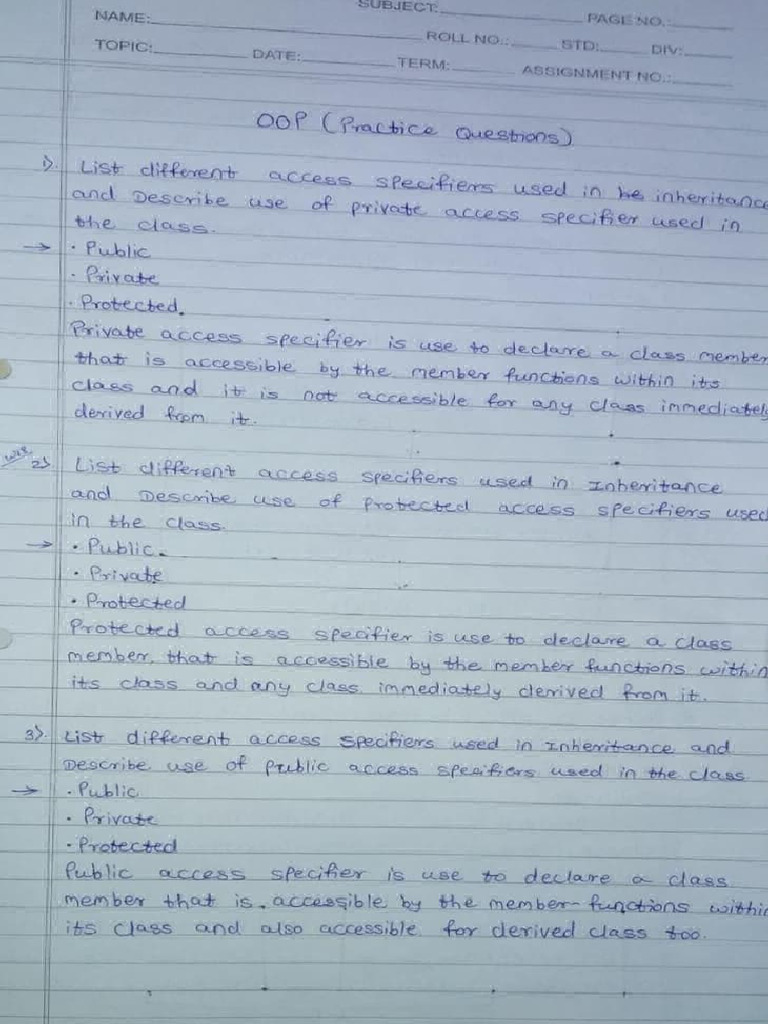 SUBJECT:
NAME:
PAGE NO.:
ROLL NO.:
STD:
DIV:
TOPIC:
DATE:
TERM:
ASSIGNMENT NO.:
OOP (Practice Questions)
1) List different access specifiers used in he inheritance
and Describe use of private access specifier used in
the class.
→ • Public
• Private
• Protected.
Private access specifier is use to declare a class member
that is accessible by the member functions within its
class and it is not accessible for any class immediately
derived from it.
2) List different access specifiers used in Inheritance
and Describe use of Protected access specifiers used
in the class.
→ • Public.
• Private
• Protected
Protected access specifier is use to declare a class
member, that is accessible by the member functions within
its class and any class immediately derived from it.
3) List different access specifiers used in Inheritance and
Describe use of Public access specifiers used in the class
→ • Public
• Private
• Protected
Public access specifier is use to declare a class
member that is accessible by the member-functions within
its class and also accessible for derived class too.